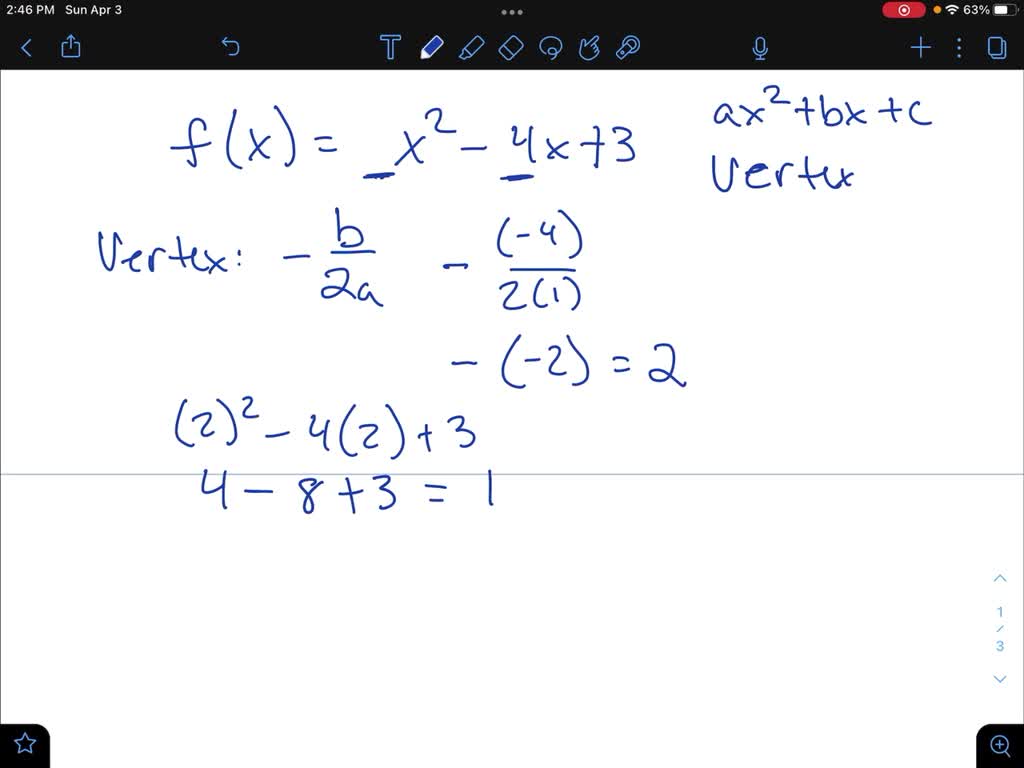 2:46 PM Sun Apr 3
63%
f(x) = _x² - 4x+3
ax²+bx+c
Vertex
Vertex: - b/2a - (-4)/2(1)
- (-2) = 2
(2)² - 4(2) + 3
4 - 8 + 3 = 1
1
/
3